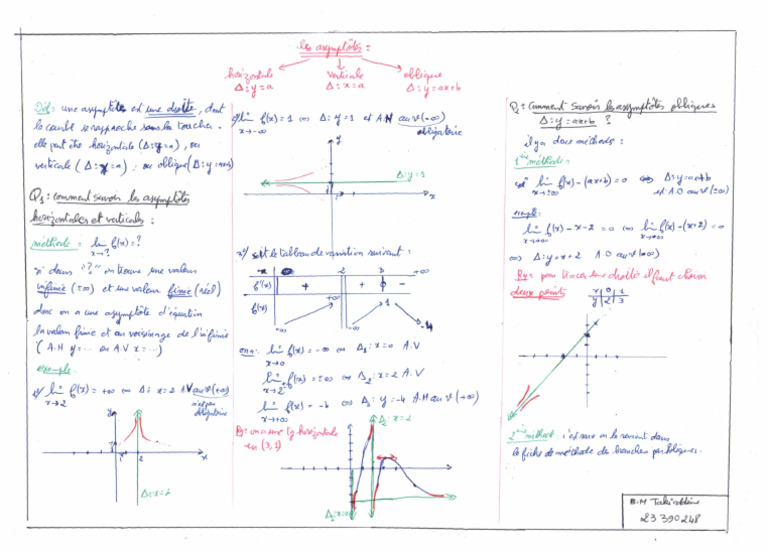 les asymptôtes :
horizontale verticale oblique
Δ : y = a Δ : x = a Δ : y = ax+b
Déf : une asymptôte est une droite, dont
la courbe se rapproche sans la toucher.
elle peut être horizontale (Δ : y = a), ou
verticale (Δ : x = a) ; ou oblique (Δ : y = ax+b)
Q1 : comment savoir les asymptôtes
horizontales et verticales :
méthode : lim f(x) = ?
x→?
si dans "?" on trouve une valeur
infinie (±∞) et une valeur finie (réel)
donc on a une asymptôte d'équation
la valeur finie et au voisinage de l'infinie
( A.H y = ... ou A.V x = ... )
exemple :
1/ lim f(x) = +∞ ⇔ Δ : x = 2 A.V au v(+∞)
x→2
obligatoire
y
1 2
x
Δ : x = 2
lim f(x) = 1 ⇔ Δ : y = 1 est A.H au v(-∞)
x→-∞
obligatoire
y
Δ : y = 1
x
soit le tableau de variation suivant :
x 2 3 +∞
f'(x) + + 0 -
f(x) -∞ +∞ -∞ 1 -4
on a : lim f(x) = -∞ ⇔ Δ1 : x = 0 A.V
x→0
lim f(x) = ±∞ ⇔ Δ2 : x = 2 A.V
x→2
lim f(x) = -4 ⇔ Δ3 : y = -4 A.H au v(+∞)
x→+∞
Rq : on a une tg horizontale
en (3,1)
Δ2 : x = 2
Δ1 : x = 0
Q : comment savoir les asymptôtes obliques
Δ : y = ax+b ?
il y a deux méthodes :
1ère méthode :
lim f(x) - (ax+b) = 0 ⇔ Δ : y = ax+b
x→±∞ est A.O au v(±∞)
exemple :
lim f(x) - x - 2 = 0 ⇔ lim f(x) - (x+2) = 0
x→+∞ x→+∞
⇔ Δ : y = x+2 A.O au v(+∞)
Rq : pour tracer une droite il faut choisir
deux points
x 0 1
y 2 3
2ème méthode : c'est ce que on le revient dans
la fiche de méthode de branches paraboliques.
B.M
23 390 248